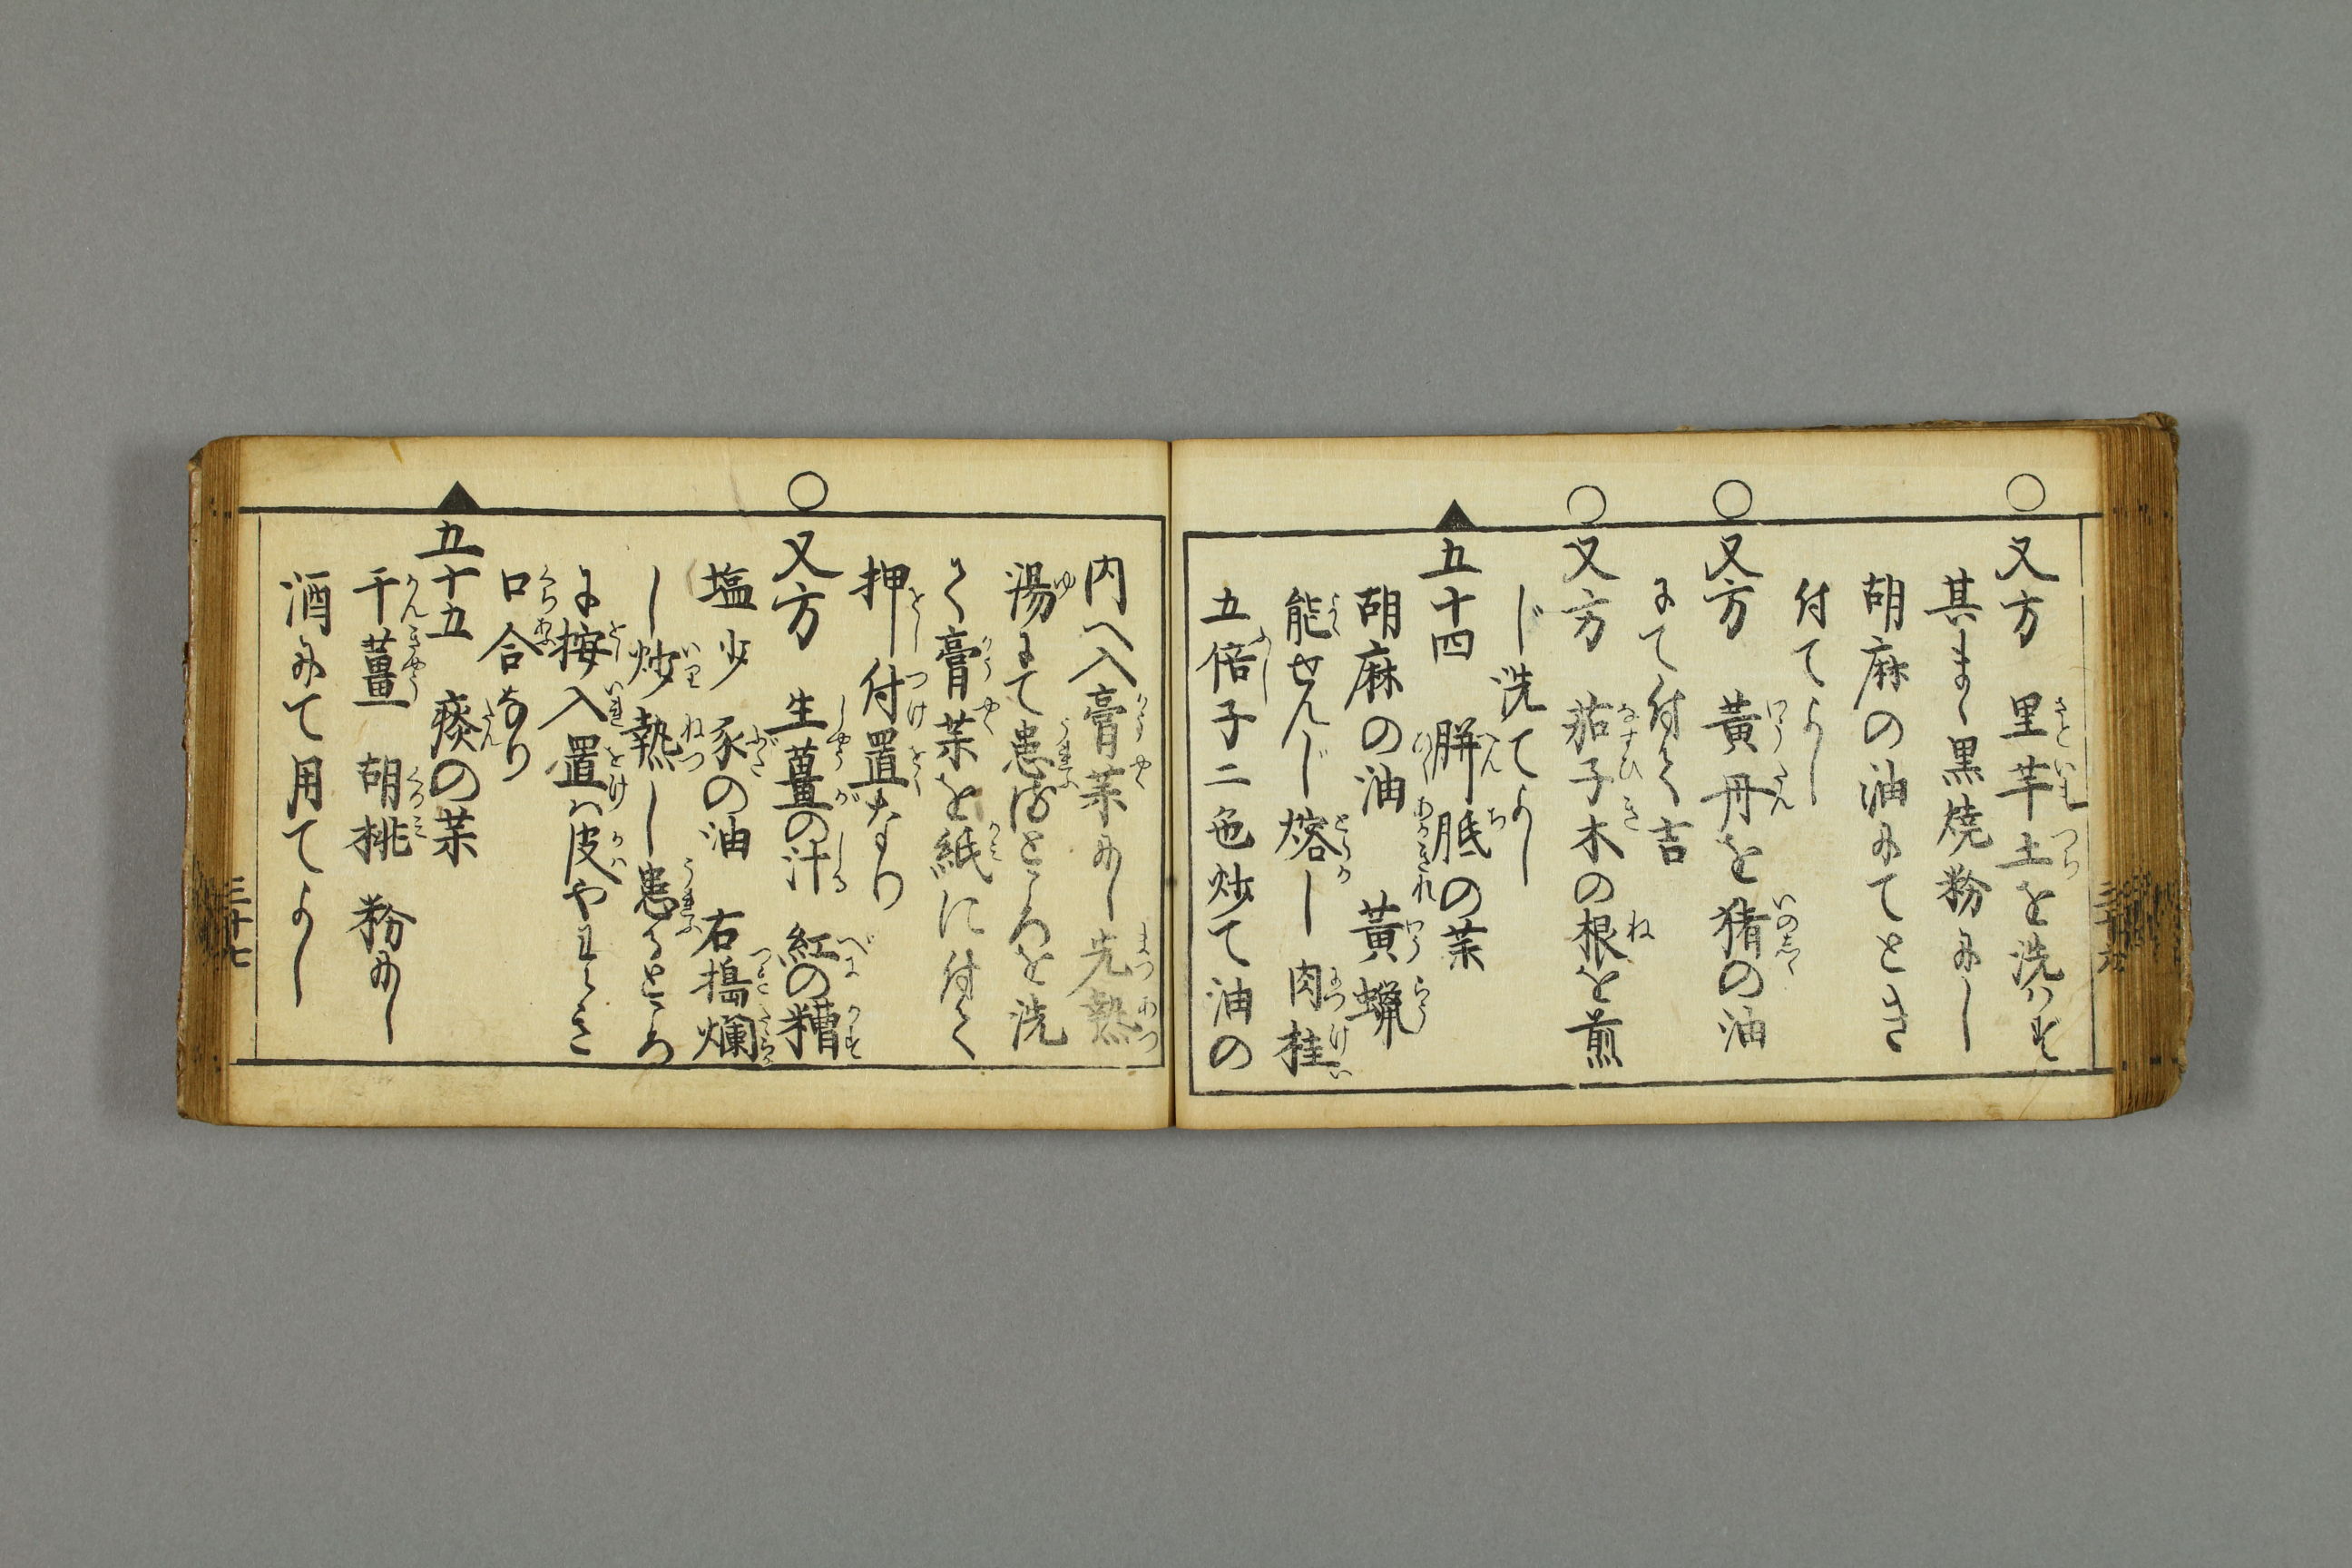 又方 里芋土を洗ハず
其まゝ黒焼粉にし
胡麻の油にてとき
付てよし
又方 黄丹を猪の油
にて付く吉
又方 茄子木の根を煎
じ洗てよし
五十四 胼胝の薬
胡麻の油 黄蝋
能せんじ熔し 肉桂
五倍子二色炒て油の
内へ入膏薬にし先熱
湯にて患るところを洗
く膏薬を紙に付く
押付置なり
又方 生薑の汁 紅の糟
塩少 豕の油 右搗爛
し炒熱し患るところ
に按入置ハ皮やわらき
口合なり
五十五 痰の薬
干薑 胡桃 粉にし
酒にて用てよし
三十七